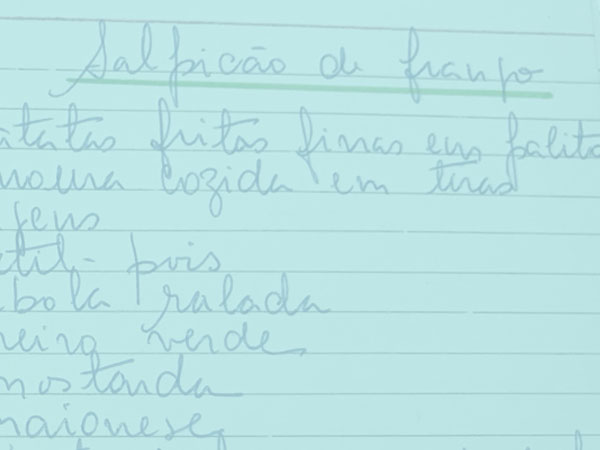 Salpicão de frango
atatas fritas finas em palito
noura cozida em tiras
gens
til - pois
bola ralada
heiro verde
mostarda
maionese